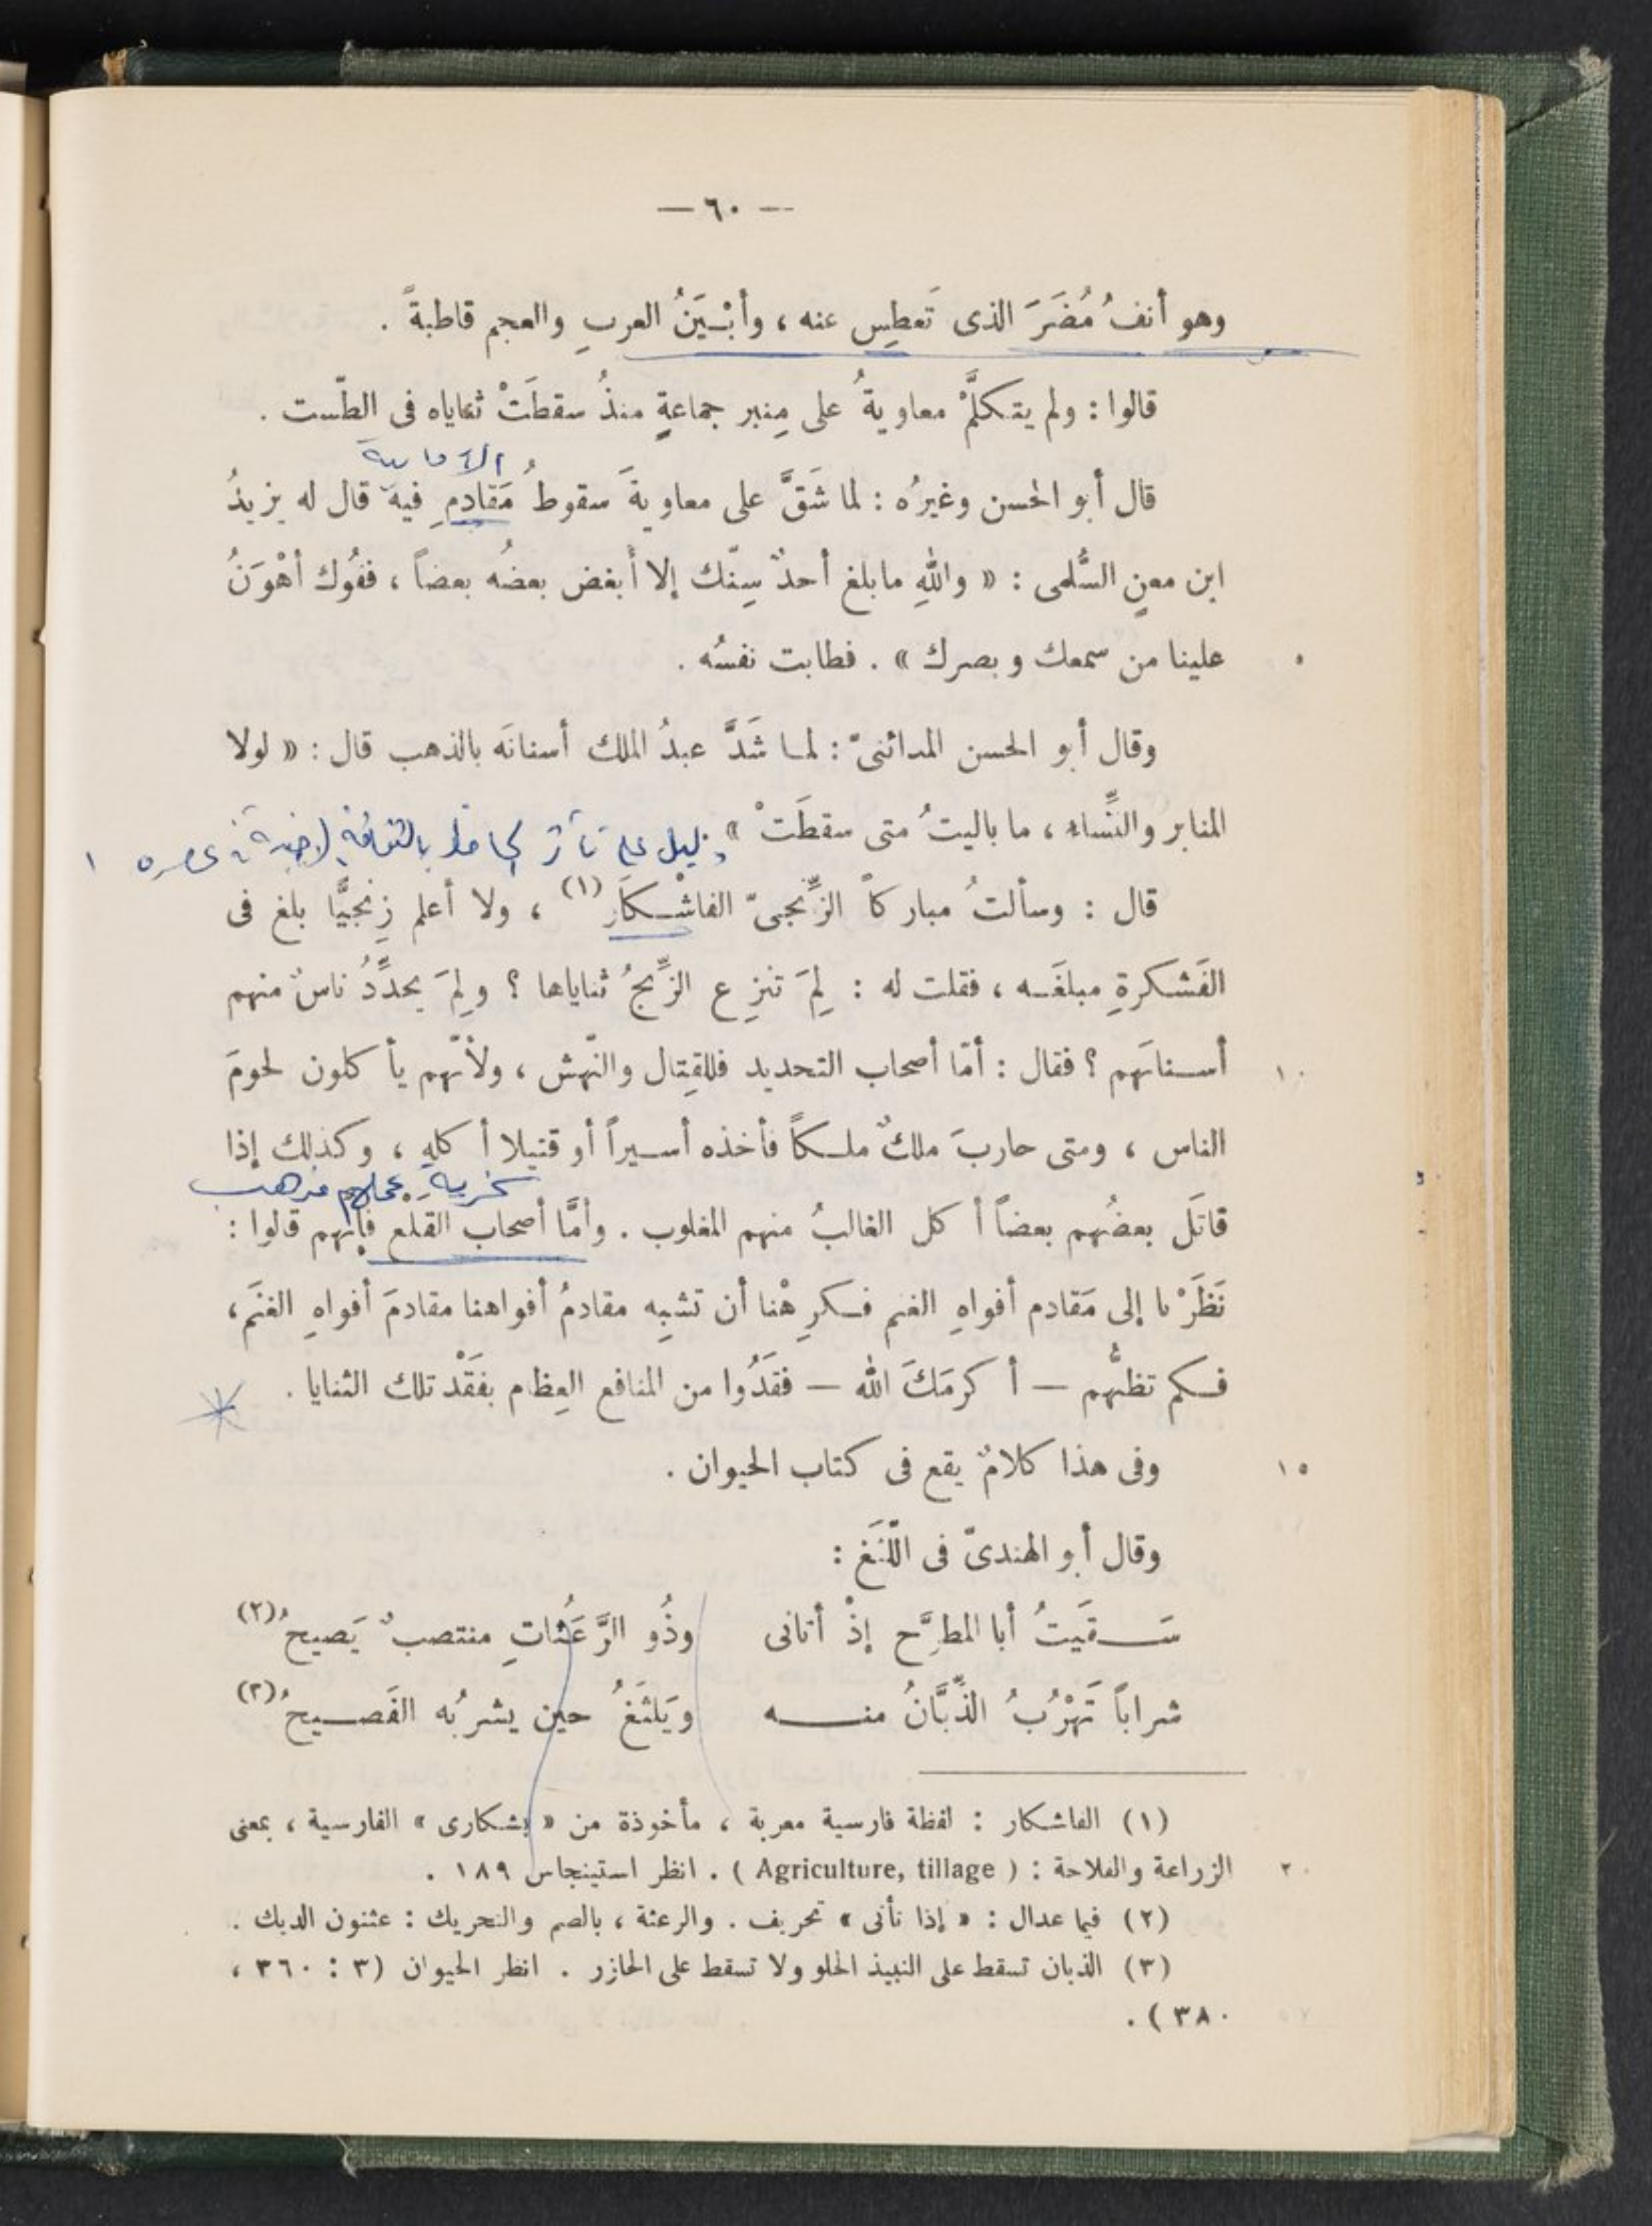 — ٦٠ —
وهو أنفُ مُضَرَ الذى تَعطِس عنه ، وأبْيَنُ العربِ والعجم قاطبةً .
قالوا : ولم يتكلَّمْ معاويةُ على مِنبر جماعةٍ منذُ سقطَتْ ثناياه فى الطّست .
الأمامية
قال أبو الحسن وغيرُه : لما شَقَّ على معاويةَ سقوطُ مَقادِمِ فيه قال له يزيدُ
ابن معنٍ السُّلمى : « واللهِ ما بلغ أحدٌ سِنّك إلا أبغض بعضُه بعضاً ، ففُوك أهْوَنُ
علينا من سمعك وبصرك » . فطابت نفسُه .
٥
وقال أبو الحسن المدائنىّ : لما شَدَّ عبدُ الملك أسنانَه بالذهب قال : « لولا
المنابر والنِّساء ، ما باليتُ متى سقطَتْ »
دليل على تأثر الجاحظ بالثقافة الاجنبية فى عصره ١
قال : وسألتُ مباركاً الزِّنجىّ الفاشْكَار (١) ، ولا أعلم زِنجيًّا بلغ فى
الفَشكرةِ مبلغَه ، فقلت له : لِمَ تنزِع الزِّنجُ ثناياها ؟ ولِمَ يحدِّدُ ناسٌ منهم
أسنانَهم ؟ فقال : أمّا أصحاب التحديد فللقِتال والنّهش ، ولأنّهم يأكلون لحومَ
١٠
الناس ، ومتى حاربَ ملكٌ ملكاً فأخذه أسيراً أو قتيلا أكله ، وكذلك إذا
سخرية
قاتَل بعضُهم بعضاً أكل الغالبُ منهم المغلوب . وأمَّا أصحاب القَلْع فإنّهم قالوا :
نَظَرْنا إلى مَقادم أفواهِ الغنم فكرِهْنا أن تشبِه مقادمُ أفواهنا مقادمَ أفواهِ الغنَم ،
فكم تظنُّهم — أكرمَكَ الله — فقَدُوا من المنافع العِظام بفَقْد تلك الثنايا .
وفى هذا كلامٌ يقع فى كتاب الحيوان .
١٥
وقال أبو الهندىّ فى اللَّثَغ :
سَقَيتُ أبا المطرَّح إذْ أتانى وذُو الرَّعَثاتِ منتصبٌ يَصيحُ (٢)
شراباً تَهْرُبُ الذِّبَّانُ منه ويَلثَغُ حين يشربُه الفَصيحُ (٣)
(١) الفاشكار : لفظة فارسية معربة ، مأخوذة من « بشكارى » الفارسية ، بمعنى
الزراعة والفلاحة : ( Agriculture, tillage ) . انظر استينجاس ١٨٩ .
٢٠
(٢) فيما عدا ل : « إذا تأنى » تحريف . والرعثة ، بالضم والتحريك : عثنون الديك .
(٣) الذبان تسقط على النبيذ الحلو ولا تسقط على الحازر . انظر الحيوان (٣ : ٣٦٠ ،
٣٨٠ ) .